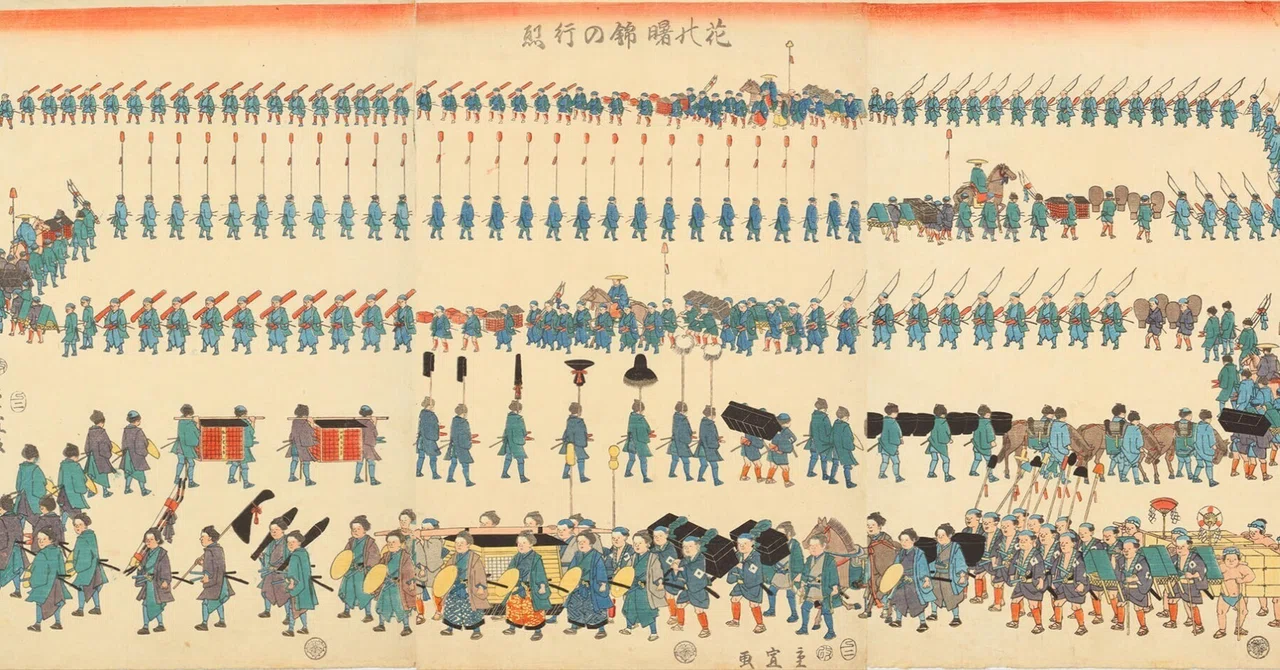 花の曙錦の行烈
重宣画